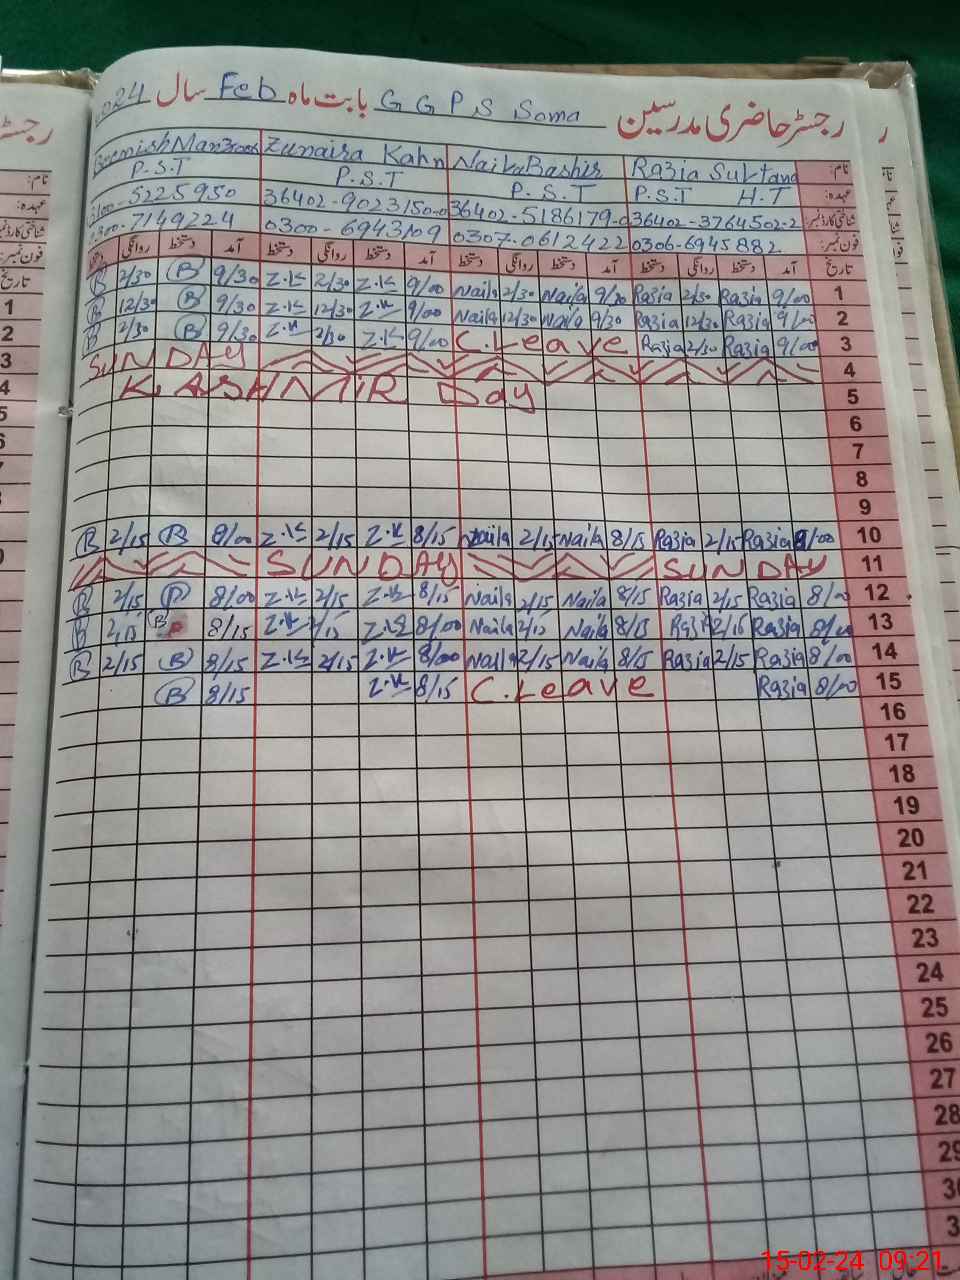 رجسٹر حاضری مدرسین G G P S Soma بابت ماہ Feb سال 2024
نام: Razia Sultana Naila Bashir Zunaira Kahn
عہدہ: P.S.T H.T P.S.T P.S.T P.S.T
شناختی کارڈ نمبر: 36402-3764502-2 36402-5186179- 36402-9023150-0 -5225950
فون نمبر: 0306-6945882 0307-0612422 0300-6943109 0300-7149224
تاریخ آمد دستخط روانگی دستخط آمد دستخط روانگی دستخط آمد دستخط روانگی دستخط آمد دستخط روانگی دستخط
1 9/00 Razia 2/30 Razia 9/30 Naila 2/30 Naila 9/00 Z.K 2/30 Z.K 9/30 B 2/30 B
2 9/00 Razia 12/30 Razia 9/30 Naila 12/30 Naila 9/00 Z.K 12/30 Z.K 9/30 B 12/30 B
3 9/00 Razia 2/30 Razia C.Leave 9/00 Z.K 2/30 Z.K 9/30 B 2/30 B
4 SUNDAY
5 KASHMIR Day
6
7
8
9
10 8/00 Razia 2/15 Razia 8/15 Naila 2/15 Naila 8/15 Z.K 2/15 Z.K 8/00 B 2/15 B
11 SUNDAY SUNDAY
12 8/00 Razia 2/15 Razia 8/15 Naila 2/15 Naila 8/15 Z.K 2/15 Z.K 8/00 B 2/15 B
13 8/00 Razia 2/15 Razia 8/15 Naila 2/15 Naila 8/00 Z.K 2/15 Z.K 8/15 B 2/15 B
14 8/00 Razia 2/15 Razia 8/15 Naila 2/15 Naila 8/00 Z.K 2/15 Z.K 8/15 B 2/15 B
15 8/00 Razia C.Leave 8/15 Z.K 8/15 B
16
17
18
19
20
21
22
23
24
25
26
27
28
29
15-02-24 09:21